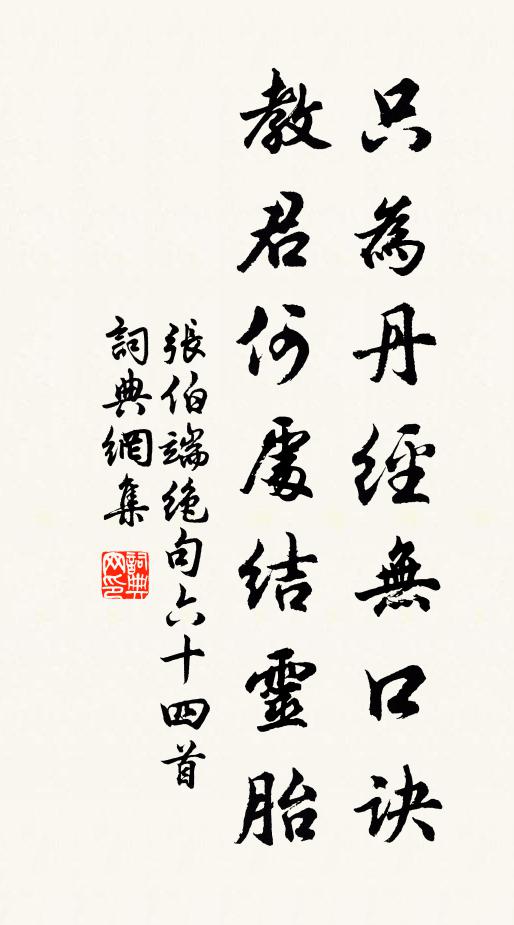 只為丹經無口訣
教君何處結靈胎
張伯端絶句六十四首
詞典網集
詞典網印